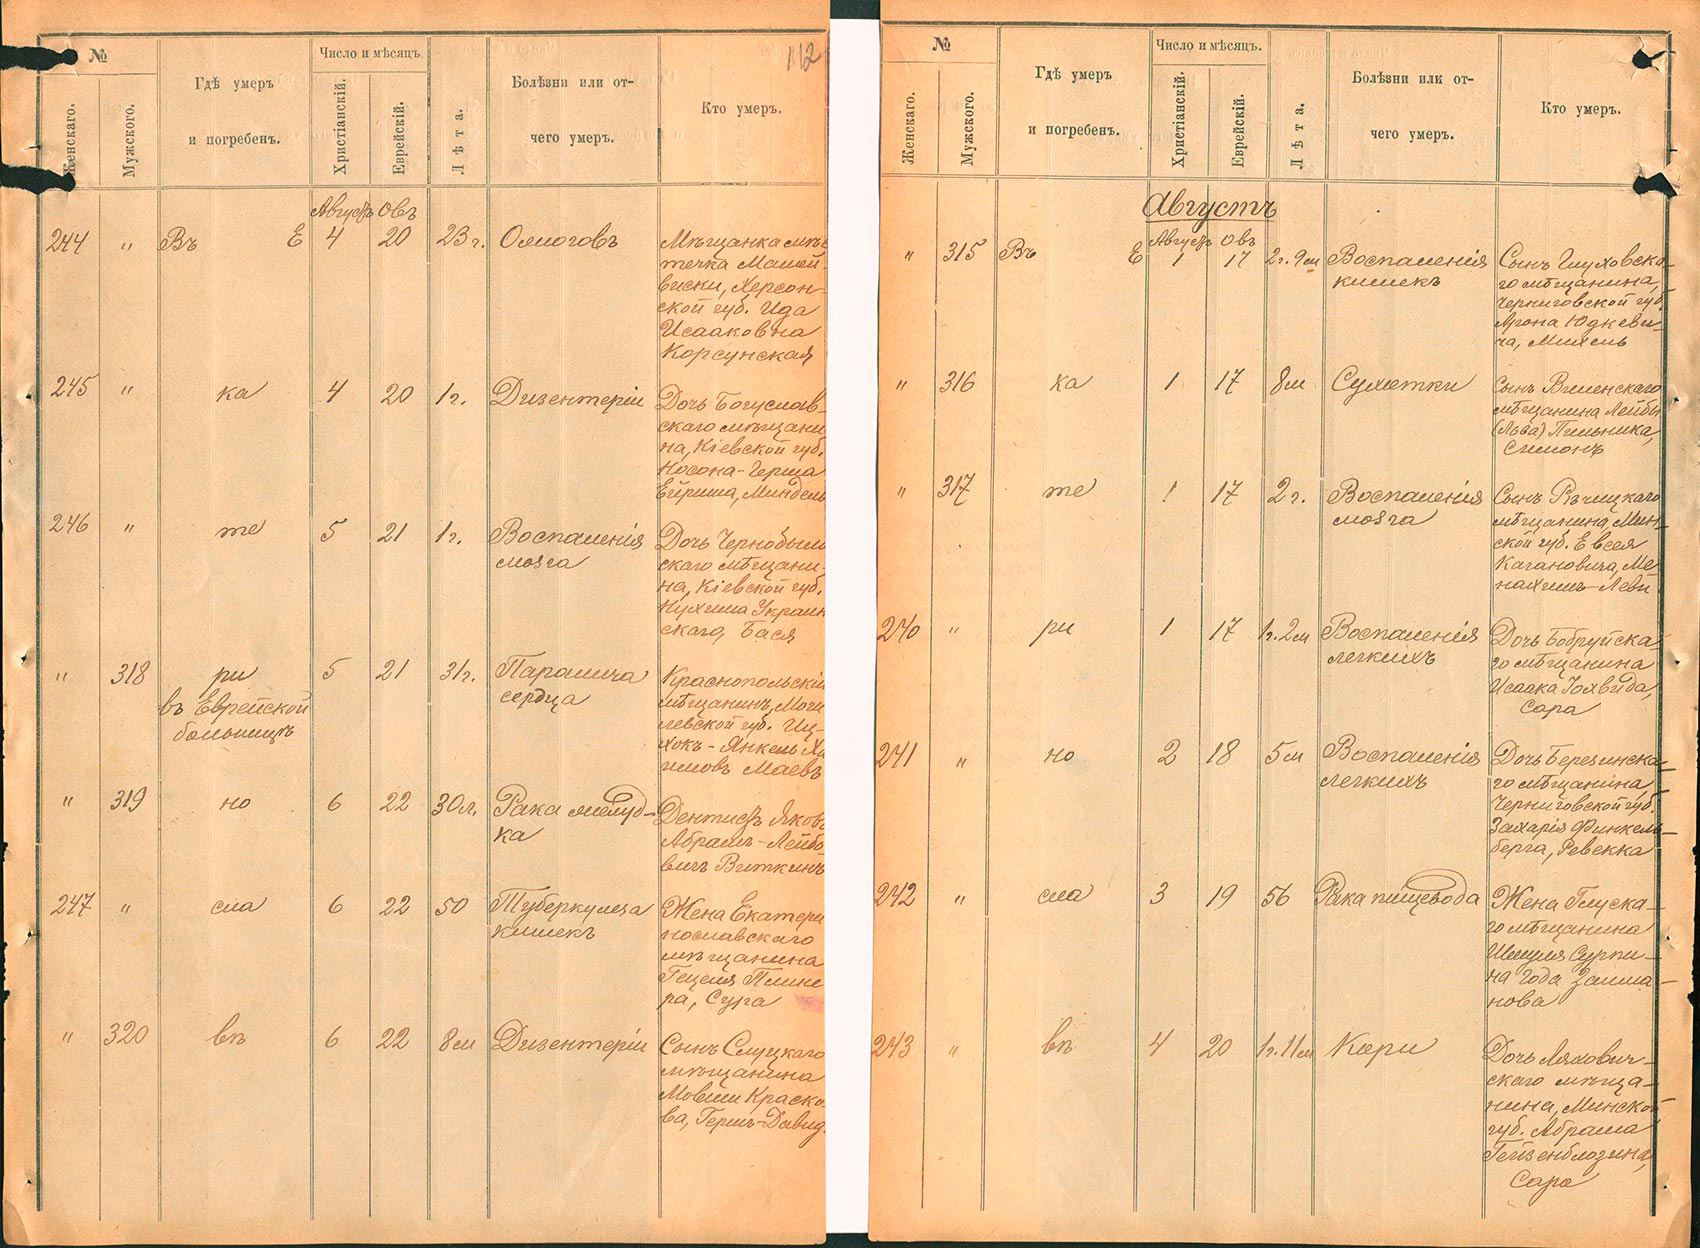 112
№
Женскаго.
Мужского.
Гдѣ умеръ
и погребенъ.
Число и мѣсяцъ.
Христіанскій.
Еврейскій.
Лѣта.
Болѣзни или от-
чего умеръ.
Кто умеръ.
Августъ Овъ
244 " Въ Е 4 20 23 г. Ожоговъ
Мѣщанка мѣс
течка
виски, Херсон-
ской губ. Ида
Исааковна
Корсунская
245 " ка 4 20 1 г. Дизентеріи
Дочь Богуслав-
скаго мѣщани
на, Кіевской губ.
Носона-Герша
Миндель
246 " те 5 21 1 г. Воспаленія
мозга
Дочь Чернобыль
скаго мѣщани-
на, Кіевской губ.
Нухима Украин
скаго, Бася
" 318 ри 5 21 31 г. Паралича
сердца
въ Еврейской
больницѣ
Краснопольскій
мѣщанинъ, Моги
левской губ. Иц-
хокъ-Янкель Ха
имовъ Маевъ
" 319 но 6 22 30 л. Рака желуд-
ка
Дентистъ Яковъ
Абрамъ-Лейбо
вичъ Виткинъ
247 " сла 6 22 50 Туберкулеза
кишекъ
Жена Екатери
нославскаго
мѣщанина
Гецеля Плине
ра, Сура
" 320 вѣ 6 22 8 м Дизентеріи
Сынъ Слуцкаго
мѣщанина
Мовши Краско-
ва, Гершъ-Давид.
№
Женскаго.
Мужского.
Гдѣ умеръ
и погребенъ.
Число и мѣсяцъ.
Христіанскій.
Еврейскій.
Лѣта.
Болѣзни или от-
чего умеръ.
Кто умеръ.
Августъ
Августъ Овъ
" 315 Въ Е 1 17 2 г. 9 м Воспаленія
кишекъ
Сынъ Глуховска-
го мѣщанина,
Черниговской губ.
Арона Юдкеви-
ча, Михель
" 316 ка 1 17 8 м Сухотки
Сынъ Виленскаго
мѣщанина Лейбы
(Льва) Пильника,
Симонъ
" 317 те 1 17 2 г. Воспаленія
мозга
Сынъ Рѣчицкаго
мѣщанина, Мин-
ской губ. Евсея
Кагановича, Ме
нахимъ-Леви
240 " ри 1 17 1 г. 2 м Воспаленія
легкихъ
Дочь Бобруйска-
го мѣщанина
Исаака Іохвида,
Сара
241 " но 2 18 5 м Воспаленія
легкихъ
Дочь Березинска-
го мѣщанина,
Черниговской губ.
Захарія Финкель-
берга, Ревекка
242 " сла 3 19 56 Рака пищевода
Жена Глуска-
го мѣщанина
Шмуля Сурпи-
на Года Залма-
нова
243 " вѣ 4 20 1 г. 11 м Кори
Дочь Ляхович-
скаго мѣща-
нина, Минской
губ. Абрама
Гейзенблозина,
Сара